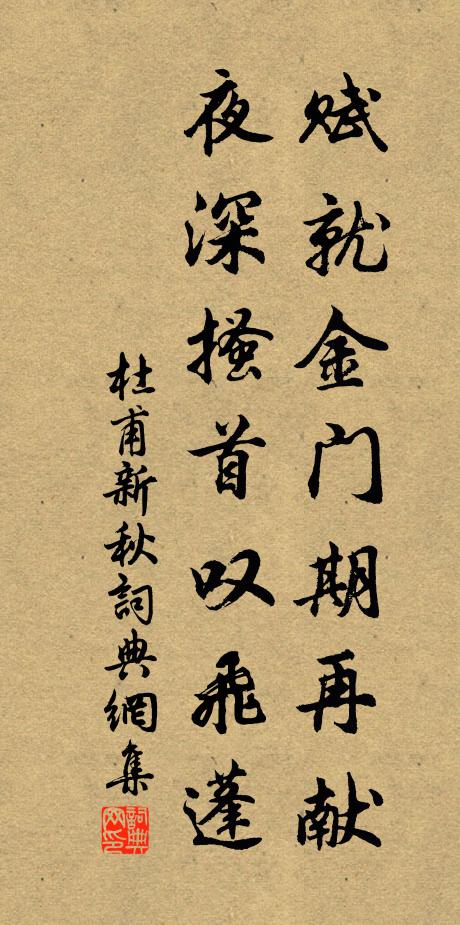 赋就金门期再献
夜深搔首叹飞蓬
杜甫新秋詞典網集
詞典网印